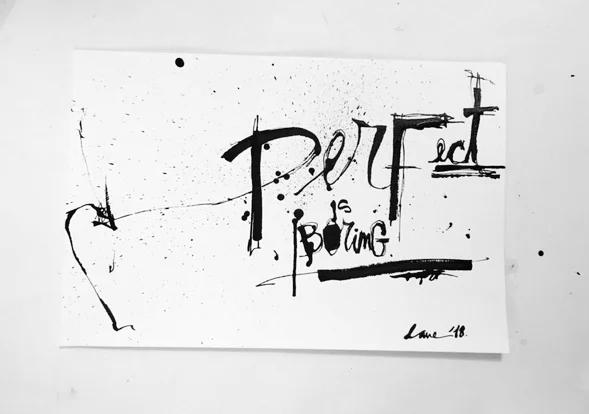 PerFect
is
BOrinG
Lane '18.